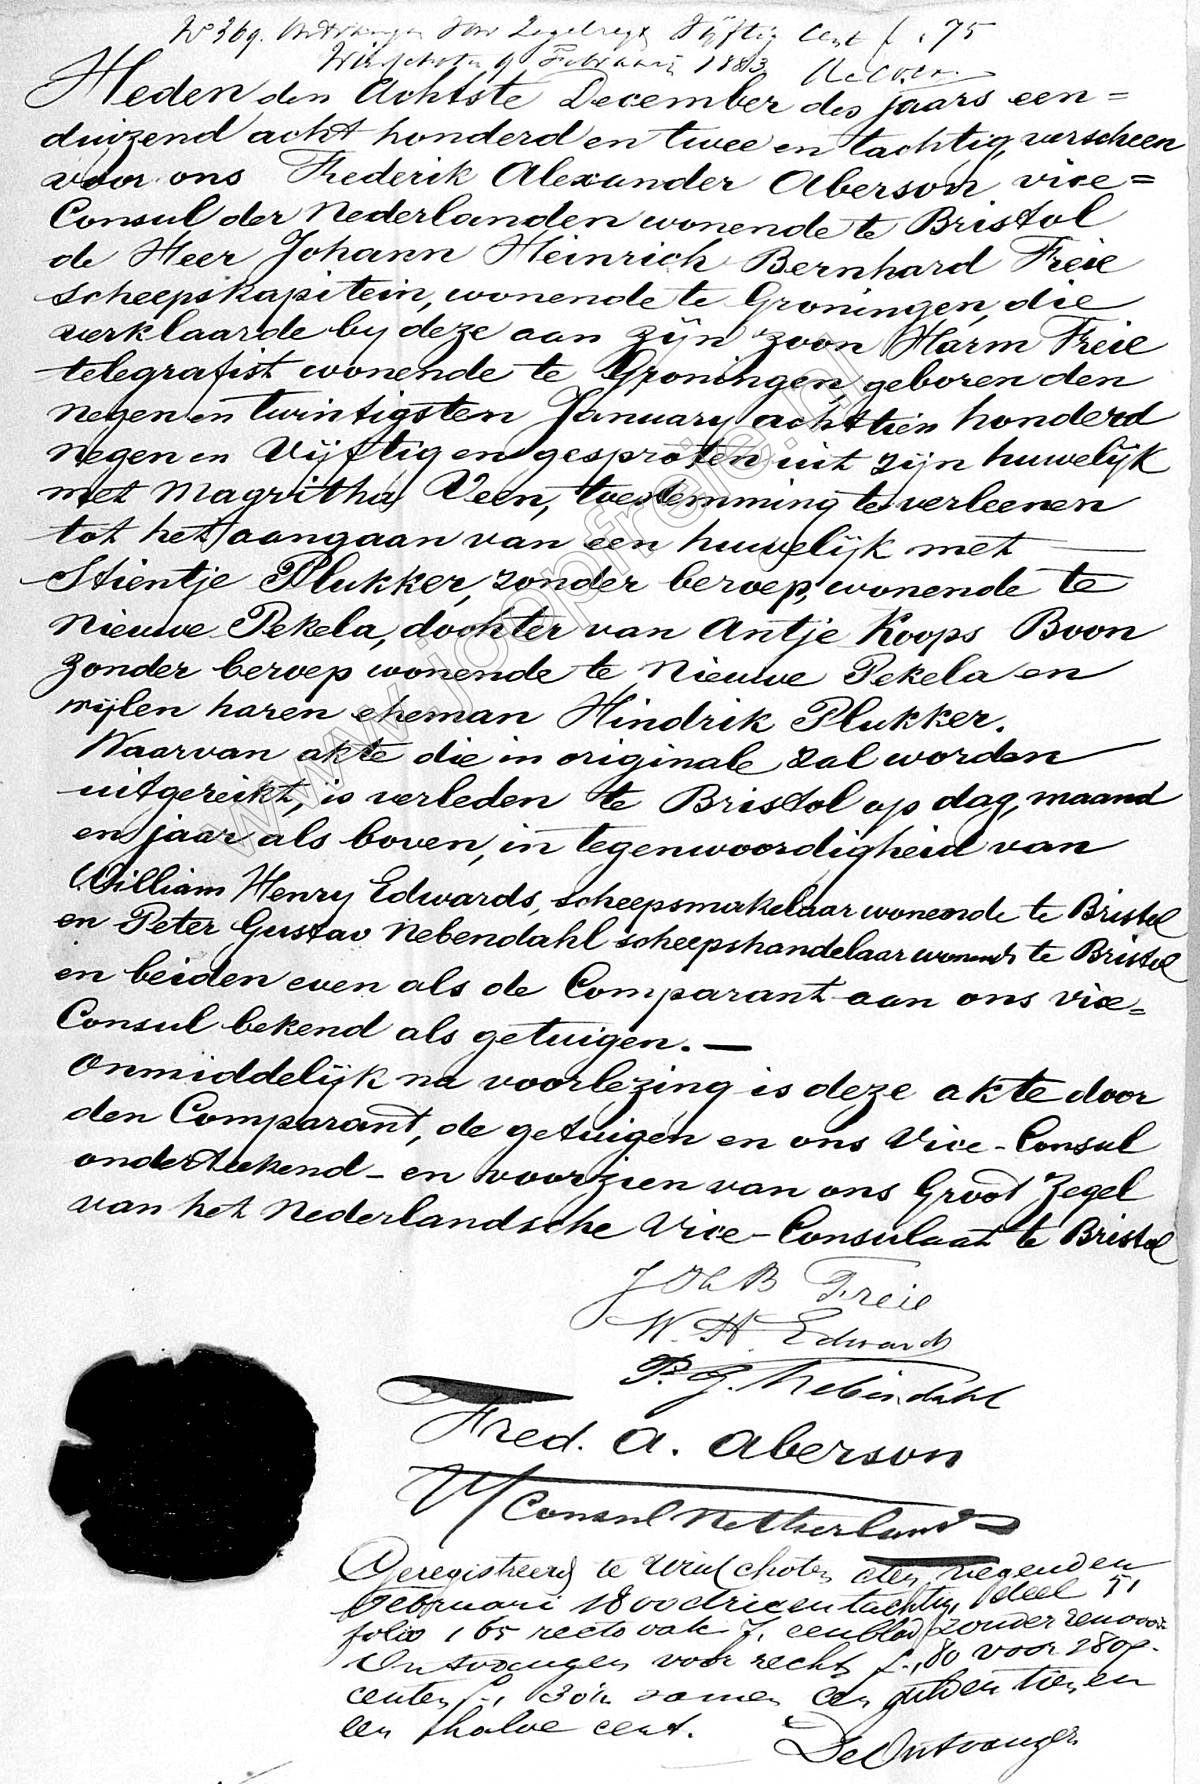 No 369. Ontvangen voor Zegelregt Vijftig Cent f ,75
Winschoten 9 Februarij 1883
Heden den Achtste December des jaars een=
duizend acht honderd en twee en tachtig, verscheen
voor ons Frederik Alexander Aberson vice=
Consul der Nederlanden wonende te Bristol
de Heer Johann Heinrich Bernhard Freie
scheepskapitein, wonende te Groningen, die
verklaarde by deze aan zijn zoon Harm Freie
telegrafist wonende te Groningen, geboren den
negen en twintigsten January achttien honderd
negen en Vijftig en gesproten uit zijn huwelijk
met Magritha Veen, toestemming te verleenen
tot het aangaan van een huwelijk met
Stientje Plukker, zonder beroep, wonende te
Nieuwe Pekela, dochter van Antje Koops Boon
zonder beroep wonende te Nieuwe Pekela en
wijlen haren eheman Hindrik Plukker.
Waarvan akte die in originale zal worden
uitgereikt, is verleden te Bristol op dag, maand
en jaar als boven, in tegenwoordigheid van
William Henry Edwards, scheepsmakelaar wonende te Bristol
en Peter Gustav Nebendahl scheepshandelaar wonende te Bristol
en beiden even als de Comparant aan ons vice=
Consul bekend als getuigen. —
Onmiddelijk na voorlezing is deze akte door
den Comparant, de getuigen en ons Vice-Consul
onderteekend - en voorzien van ons Groot Zegel
van het Nederlandsche Vice-Consulaat te Bristol
J H B Freie
W. H. Edwards
P. G. Nebendahl
Fred. A. Aberson
V/Consul Netherlands
Geregistreerd te Winschoten den negenden
Februari 1800 drieentachtig, deel 51
folio 165 recto vak 7, een blad zonder renvooi
Ontvangen voor recht f -,80 voor 38 op-
centen f -, 30½ zamen een gulden tien en
een halve cent.
De Ontvanger
www.jopfreie.nl